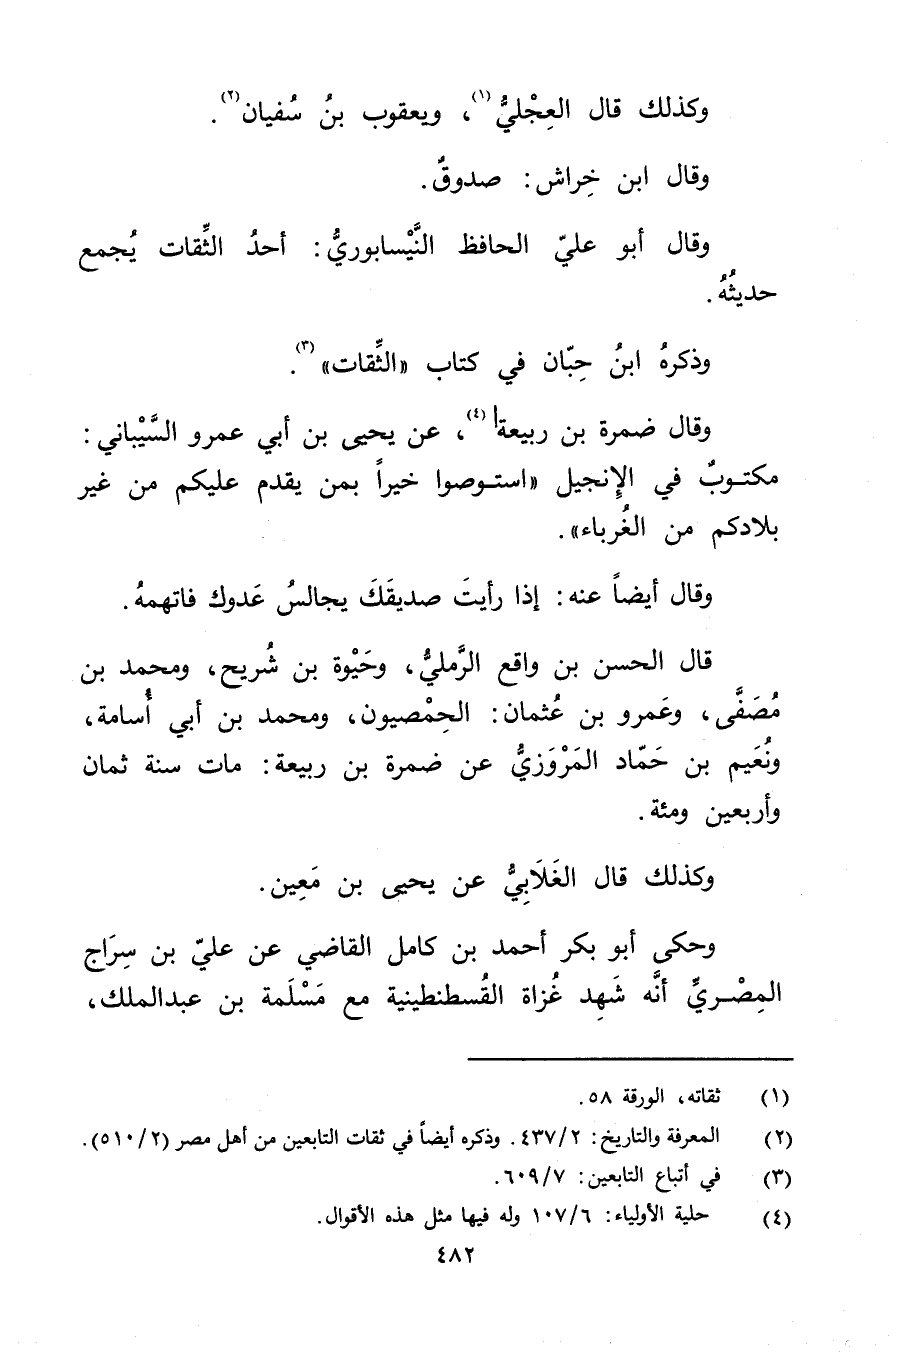 وكذلك قال العِجْليُّ(١)، ويعقوب بنُ سُفيان(٢).
وقال ابن خِراش: صدوقٌ.
وقال أبو عليّ الحافظ النَّيْسابوريُّ: أحدُ الثِّقات يُجمع
حديثُهُ.
وذكرهُ ابنُ حِبّان في كتاب «الثِّقات»(٣).
وقال ضمرة بن ربيعة(٤)، عن يحيى بن أبي عمرو السَّيْباني:
مكتـوبٌ في الإِنجيل «استـوصوا خيراً بمن يقدم عليكم من غير
بلادكم من الغُرباء».
وقال أيضاً عنه: إذا رأيتَ صديقَكَ يجالسُ عَدوك فاتهمهُ.
قال الحسن بن واقع الرَّمليُّ، وحَيْوة بن شُريح، ومحمد بن
مُصَفَّى، وعَمرو بن عُثمان: الحِمْصيون، ومحمد بن أبي أُسامة،
ونُعَيم بن حَمّاد المَرْوَزيُّ عن ضمرة بن ربيعة: مات سنة ثمان
وأربعين ومئة.
وكذلك قال الغَلَابِيُّ عن يحيى بن مَعِين.
وحكى أبو بكر أحمد بن كامل القاضي عن عليّ بن سِرَاج
المِصْـريِّ أنَّه شَهِد غُزاة القُسطنطينية مع مَسْلَمة بن عبدالملك،
(١) ثقاته، الورقة ٥٨.
(٢) المعرفة والتاريخ: ٤٣٧/٢. وذكره أيضاً في ثقات التابعين من أهل مصر (٥١٠/٢).
(٣) في أتباع التابعين: ٦٠٩/٧.
(٤) حلية الأولياء: ١٠٧/٦ وله فيها مثل هذه الأقوال.
٤٨٢